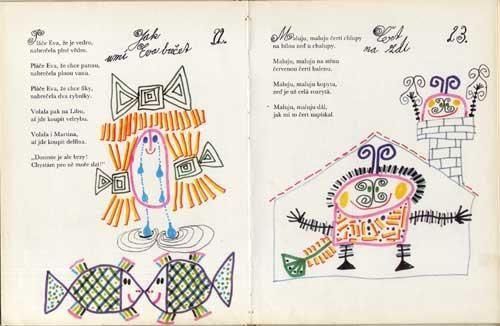 Jak
umí Eva bulet
22.
Pláče Eva, že je vedro,
nabrečela plné vědro.
Pláče Eva, že chce pannu,
nabrečela plnou vanu.
Pláče Eva, že chce fíky,
nabrečela dva rybníky.
Volala pak na Libu,
ať jde koupit velrybu.
Volala i Martina,
ať jde koupit delfína.
„Doneste je ale brzy!
Chystám pro ně moře slz!“
Čert
na zdi
23.
Maluju, maluju čerti chlupy
na bílou zeď u chalupy.
Maluju, maluju na stěnu
červenou čertí halenu.
Maluju, maluju kopyta,
zeď je už celá rozrytá.
Maluju, maluju dál,
jak mi to čert napískal.